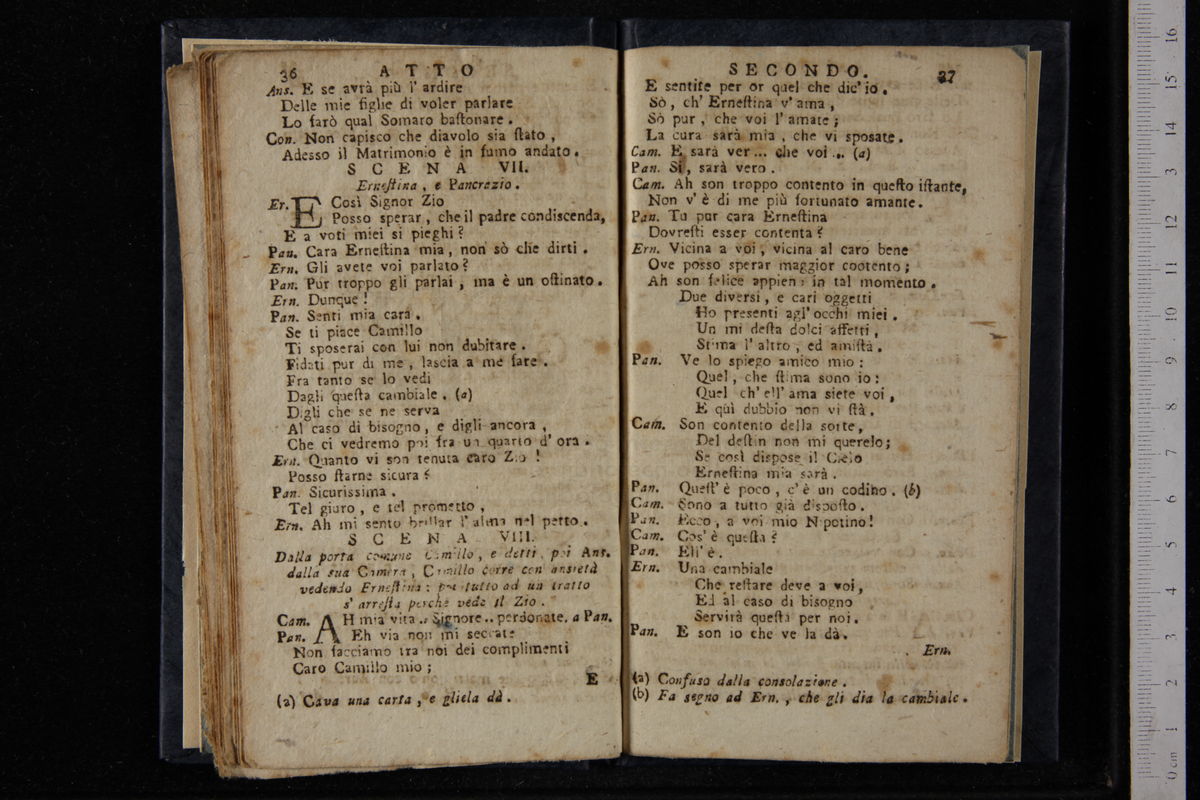 36 ATTO
Ans. E se avrà più l' ardire
Delle mie figlie di voler parlare
Lo farò qual Somaro baſtonare .
Con. Non capisco che diavolo sia ſtato ,
Adesso il Matrimonio è in fumo andato .
SCENA VII.
Erneſtina , e Pancrazio .
Er. E Così Signor Zio
Posso sperar , che il padre condiscenda,
E a voti miei si pieghi ?
Pan. Cara Erneſtina mia , non sò che dirti .
Ern. Gli avete voi parlato ?
Pan. Pur troppo gli parlai , ma è un oſtinato .
Ern. Dunque !
Pan. Senti mia cara .
Se ti piace Camillo
Ti sposerai con lui non dubitare .
Fidati pur di me , lascia a me fare .
Fra tanto se lo vedi
Dagli queſta cambiale . (a)
Digli che se ne serva
Al caso di bisogno , e digli ancora ,
Che ci vedremo poi fra un quarto d' ora .
Ern. Quanto vi son tenuta caro Zio !
Posso ſtarne sicura ?
Pan. Sicurissima .
Tel giuro , e tel prometto ,
Ern. Ah mi sento brillar l' alma nel petto .
SCENA VIII.
Dalla porta comune Camillo , e detti , poi Ans.
dalla sua Camera , Camillo corre con ansietà
vedendo Erneſtina ; poi tutto ad un tratto
s' arreſta perchè vede il Zio .
Cam. AH mia vita .. Signore .. perdonate. a Pan.
Pan. Eh via non mi seccate
Non facciamo tra noi dei complimenti
Caro Camillo mio ;
E
(a) Cava una carta , e gliela dà .
SECONDO. 37
E sentite per or quel che dic' io .
Sò , ch' Erneſtina v' ama ,
Sò pur , che voi l' amate ;
La cura sarà mia , che vi sposate .
Cam. E sarà ver ... che voi ... (a)
Pan. Sì , sarà vero .
Cam. Ah son troppo contento in queſto iſtante,
Non v' è di me più fortunato amante .
Pan. Tu pur cara Erneſtina
Dovreſti esser contenta ?
Ern. Vicina a voi , vicina al caro bene
Ove posso sperar maggior cootento ;
Ah son felice appieno in tal momento .
Due diversi , e cari oggetti
Ho presenti agl' occhi miei .
Un mi deſta dolci affetti ,
Stima l' altro , ed amiſtà .
Pan. Ve lo spiego amico mio :
Quel , che ſtima sono io :
Quel ch' ell' ama siete voi ,
E quì dubbio non vi ſtà .
Cam. Son contento della sorte ,
Del deſtin non mi querelo ;
Se così dispose il Cielo
Erneſtina mia sarà .
Pan. Queſt' è poco , c' è un codino . (b)
Cam. Sono a tutto già dispoſto .
Pan. Ecco , a voi mio Nipotino !
Cam. Cos' è queſta ?
Pan. Ell' è .
Ern. Una cambiale
Che reſtare deve a voi ,
Ed al caso di bisogno
Servirà queſta per noi .
Pan. E son io che ve la dà .
Ern.
(a) Confuso dalla consolazione .
(b) Fa segno ad Ern. , che gli dia la cambiale .
0 cm 1 2 3 4 5 6 7 8 9 10 11 12 13 14 15 16